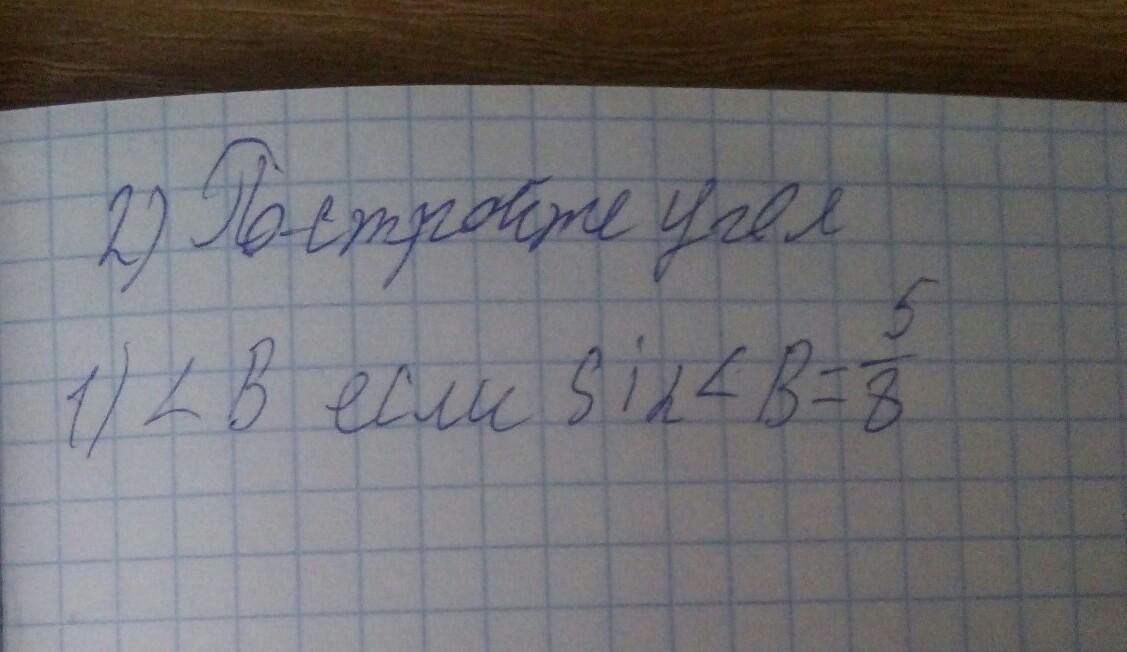 2) Постройте угол
1) < B если sin < B = 5/8